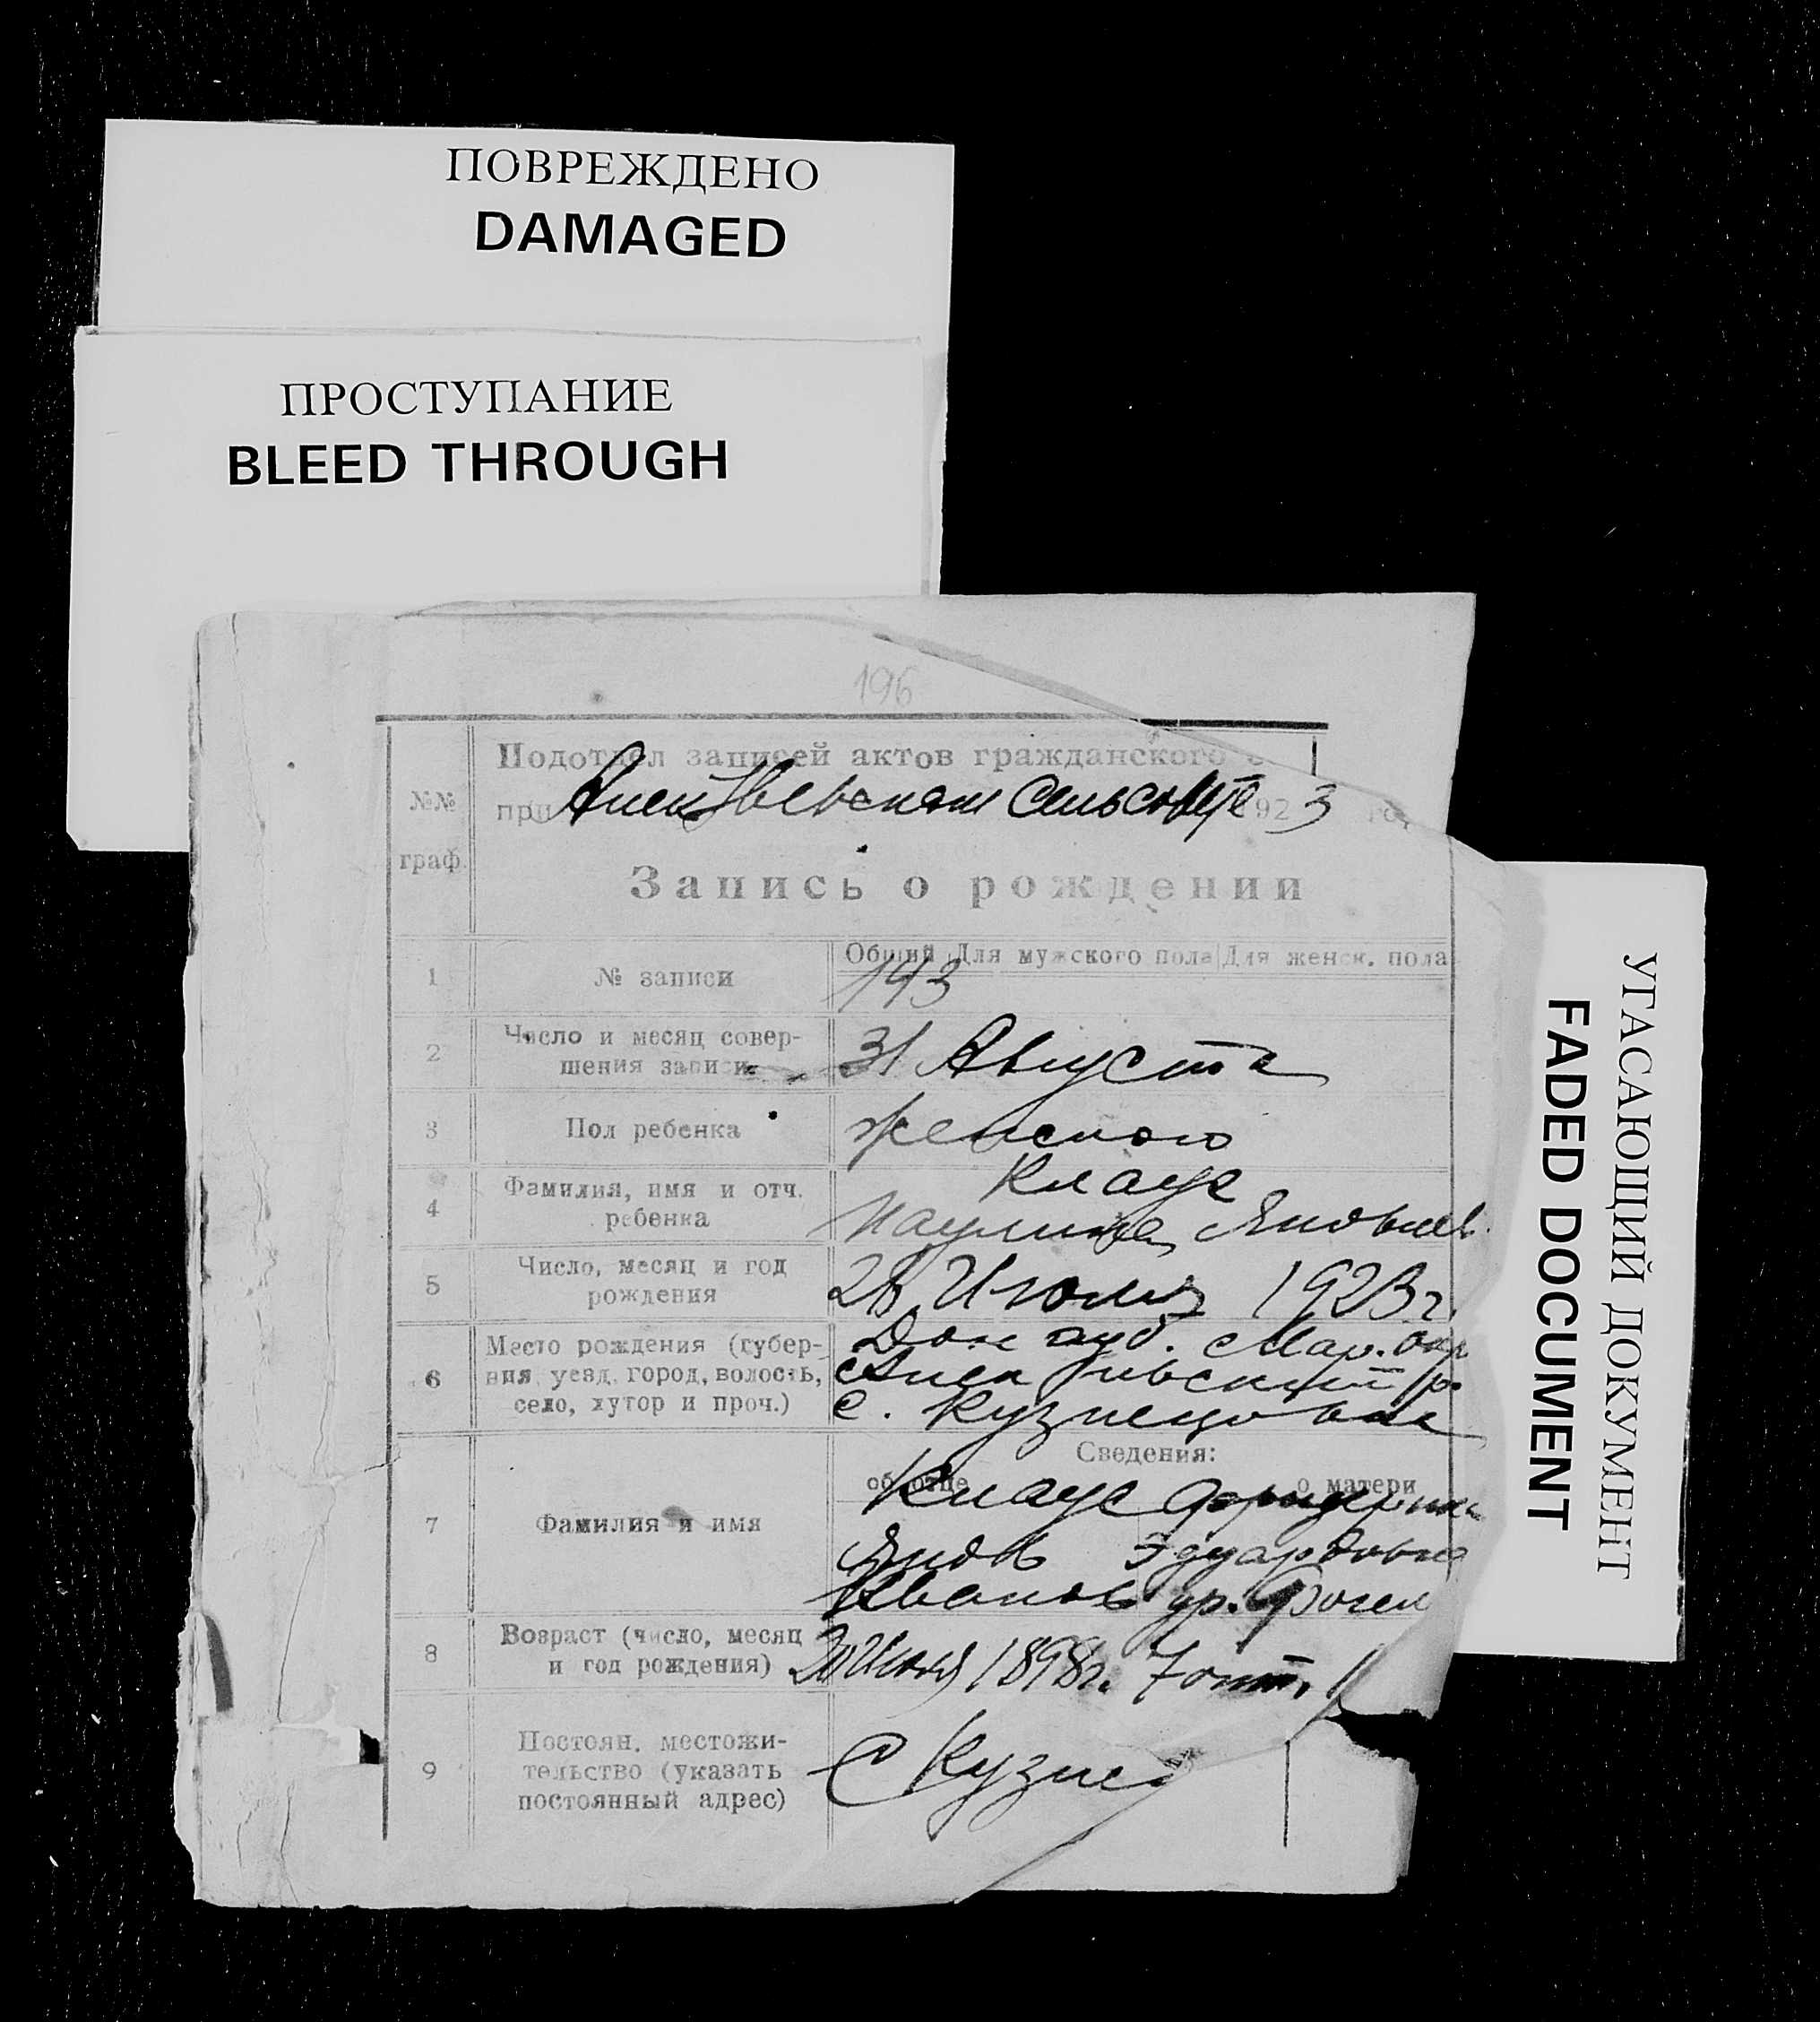 ПОВРЕЖДЕНО
DAMAGED
ПРОСТУПАНИЕ
BLEED THROUGH
196
№№
граф.
Подотдел записей актов гражданского
при сельсовете 1923 год
Запись о рождении
Общий Для мужского пола Для женск. пола
1 № записи 143
2 Число и месяц совер-
шения записи 31 Августа
3 Пол ребенка женского
4 Фамилия, имя и отч.
ребенка Клаус
Паулина Яковлев.
5 Число, месяц и год
рождения Июля 1923 г.
6 Место рождения (губер-
ния, уезд, город, волость,
село, хутор и проч.) Дон губ. Мар. окр
р.
с. Кузнецовка
Сведения:
об отце о матери
7 Фамилия и имя Клаус Фридерика
Яков Эдуардовна
Иванов ур. Фогел
8 Возраст (число, месяц
и год рождения) 1898 г. 7
9 Постоян. местожи-
тельство (указать
постоянный адрес) С Кузнец
УГАСАЮЩИЙ ДОКУМЕНТ
FADED DOCUMENT